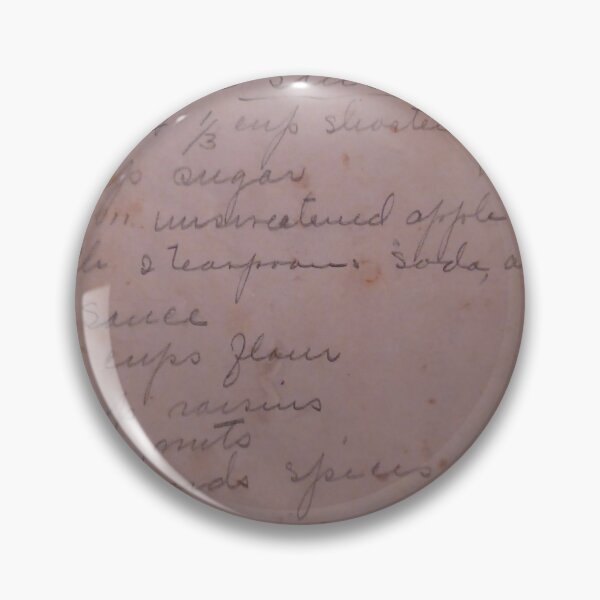 1/3 cup shorte
sugar
" unsweetened apple
2 teaspoons soda, a
sauce
cups flour
raisins
nuts
spices